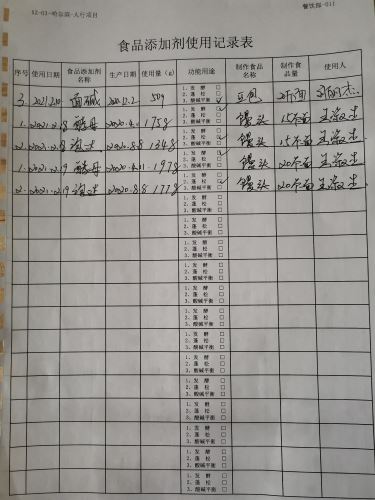 SZ-03-哈尔滨-人行项目
餐饮部-011
食品添加剂使用记录表
序号 使用日期 食品添加剂名称 生产日期 使用量(g) 功能用途 制作食品名称 制作食品量 使用人
3. 2021.2.10 面碱 2020.12.2 50g 1、发酵 □ 2、蓬松 □ 3、酸碱平衡 豆包
1. 2021.2.18 酵母 2020.4.1 175g 1、发酵 2、蓬松 □ 3、酸碱平衡 □ 馒头 15斤面
2. 2021.2.18 泡打 2020.8.8 134g 1、发酵 □ 2、蓬松 3、酸碱平衡 □ 馒头 15斤面
1. 2021.2.19 酵母 2020.4.11 197g 1、发酵 2、蓬松 □ 3、酸碱平衡 □ 馒头 20斤面
2. 2021.2.19 泡打 2020.8.8 177g 1、发酵 □ 2、蓬松 3、酸碱平衡 □ 馒头 20斤面
1、发酵 □ 2、蓬松 □ 3、酸碱平衡 □
1、发酵 □ 2、蓬松 □ 3、酸碱平衡 □
1、发酵 □ 2、蓬松 □ 3、酸碱平衡 □
1、发酵 □ 2、蓬松 □ 3、酸碱平衡 □
1、发酵 □ 2、蓬松 □ 3、酸碱平衡 □
1、发酵 □ 2、蓬松 □ 3、酸碱平衡 □
1、发酵 □ 2、蓬松 □ 3、酸碱平衡 □
1、发酵 □ 2、蓬松 □ 3、酸碱平衡 □
1、发酵 □ 2、蓬松 □ 3、酸碱平衡 □
1、发酵 □ 2、蓬松 □ 3、酸碱平衡 □
1、发酵 □ 2、蓬松 □ 3、酸碱平衡 □
1、发酵 □ 2、蓬松 □ 3、酸碱平衡 □
1、发酵 □ 2、蓬松 □ 3、酸碱平衡 □